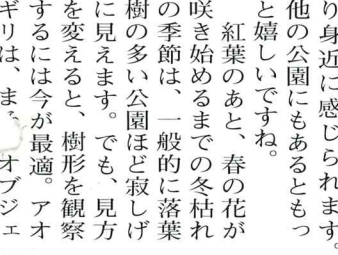 り身近に感じられます。
他の公園にもあるともっ
と嬉しいですね。
紅葉のあと、春の花が
咲き始めるまでの冬枯れ
の季節は、一般的に落葉
樹の多い公園ほど寂しげ
に見えます。でも、見方
を変えると、樹形を観察
するには今が最適。アオ
ギリは、ま オブジェ